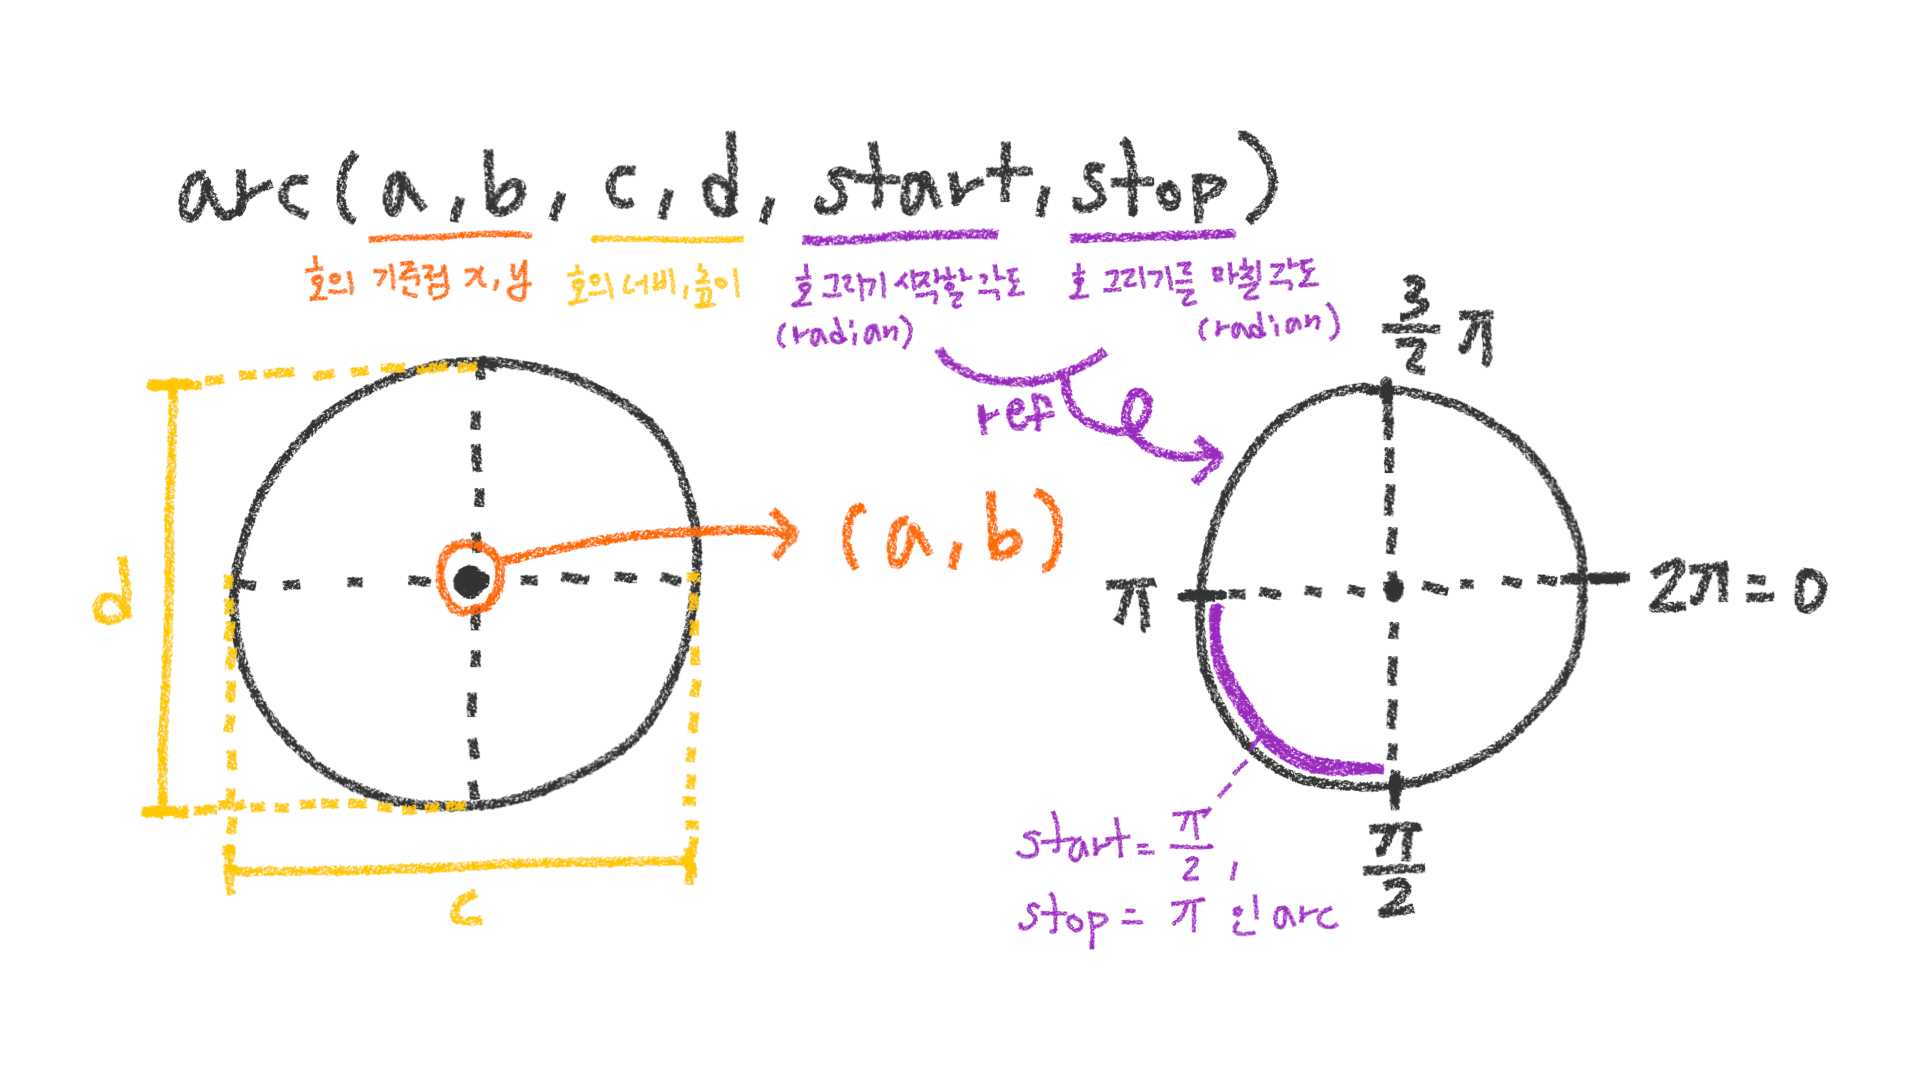 arc(a,b,c,d,start,stop)
호의 기준점 x,y
호의 너비,높이
호 그리기 시작할 각도
(radian)
호 그리기를 마칠 각도
(radian)
ref
d
c
(a,b)
3/2 π
π
2π=0
π/2
start=π/2,
stop=π 인 arc